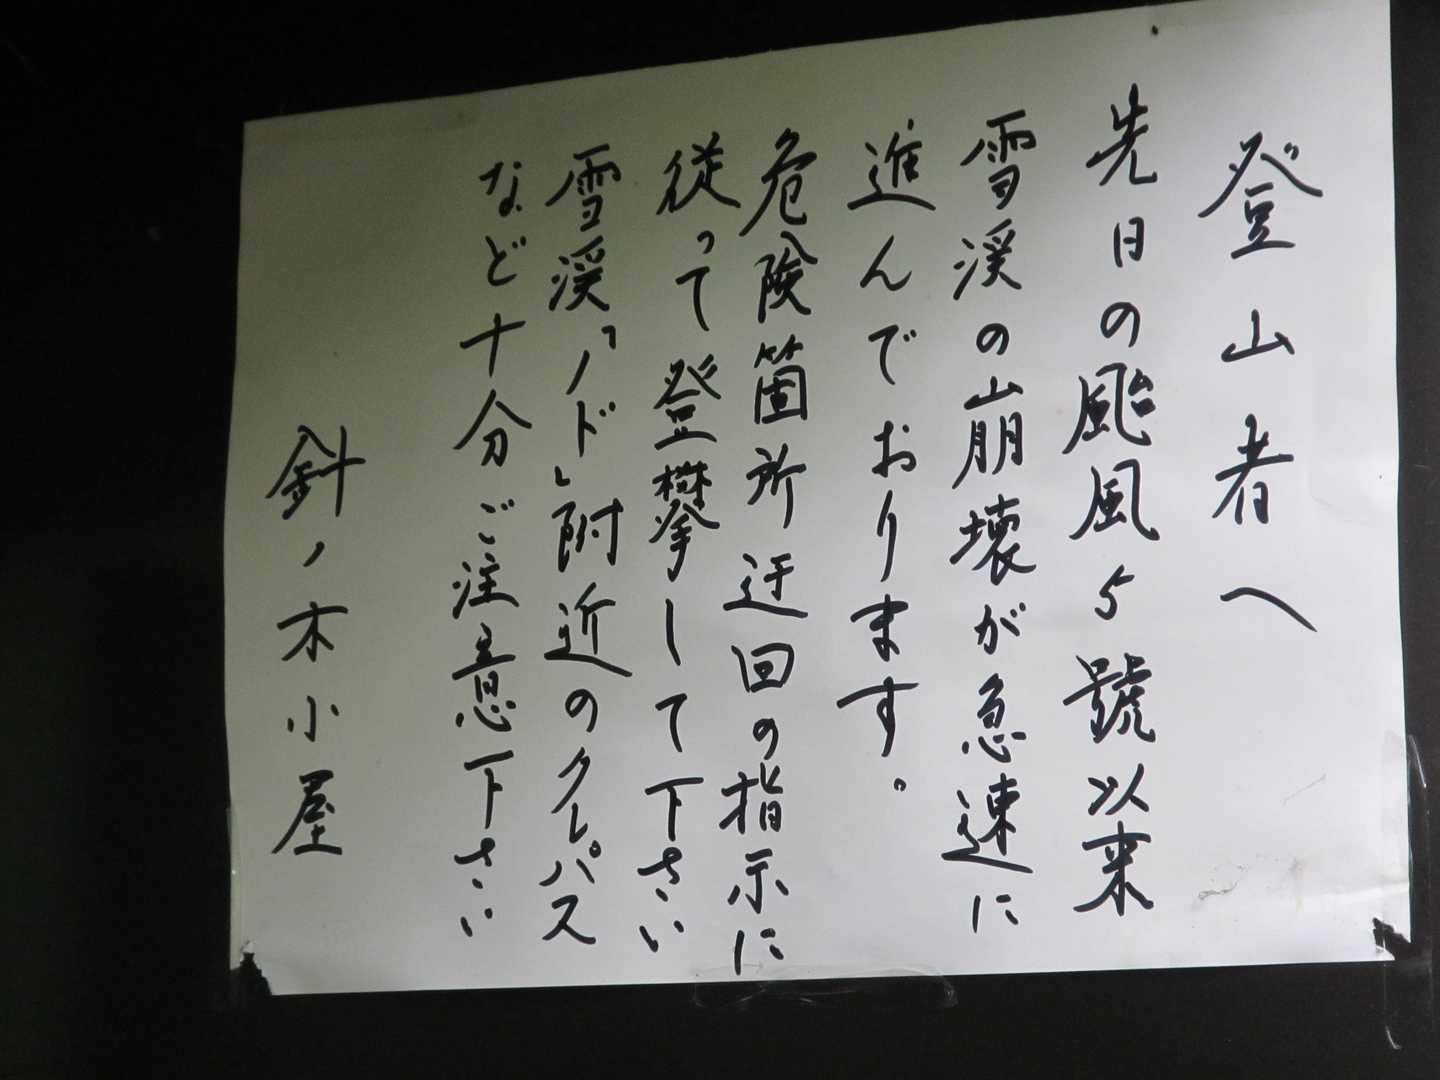 登山者へ
先日の颱風5號以来
雪渓の崩壊が急速に
進んでおります。
危険箇所迂回の指示に
従って登攀して下さい
雪渓「ノド」附近のクレパス
など十分ご注意下さい
針ノ木小屋